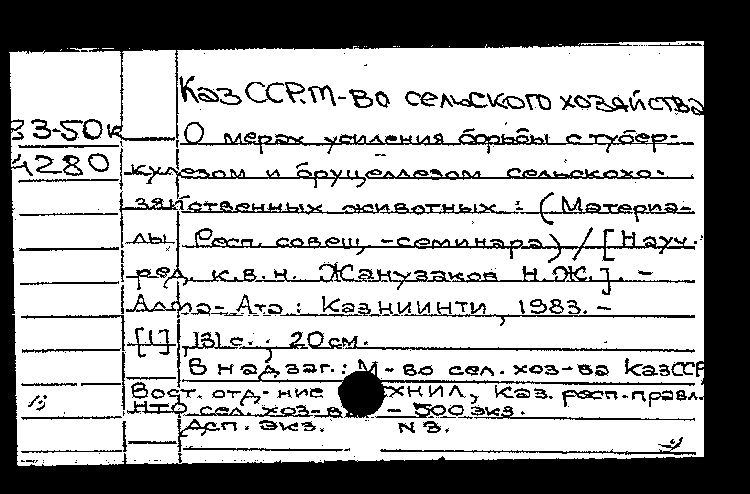 КазССР. М-во сельского хозяйства
83-50к
О мерах усиления борьбы с тубер-
4280
кулезом и бруцеллезом сельскохо-
зяйственных животных : (Материа-
лы Респ. совещ.-семинара) / [Науч.
ред. к.в.н. Жанузаков Н.Ж.]. -
Алма-Ата : КазНИИНТИ, 1983. -
[1], 131 с. ; 20 см.
В надзаг.: М-во сел. хоз-ва КазССР,
Вост. отд-ние ХНИЛ, Каз. респ. правл.
НТО сел. хоз-в - 500 экз.
Деп. экз. N 3.